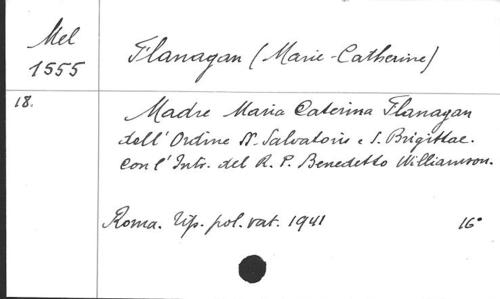 Mel
1555
Flanagan (Marie-Catherine)
18.
Madre Maria Caterina Flanagan
dell'Ordine SS. Salvatoris e S. Brigittae.
con l'Intr. del R. P. Benedetto Williamson.
Roma. Tip. pol. vat. 1941 16°